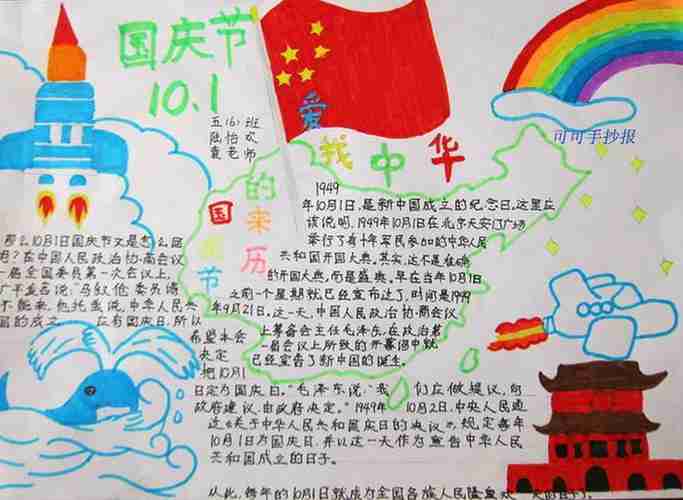 国庆节
10.1
五(6)班
陆怡欢
袁老师
爱我中华
可可手抄报
国庆节的来历
1949
年10月1日,是新中国成立的纪念日。这里应
该说明,1949年10月1日在北京天安门广场
举行了有十年军民参加的中华人民
共和国开国大典。其实,这不是准确
的开国大典,而是盛典。早在当年10月1日
之前一个星期就已经宣布过了,时间是1949
年9月21日。这一天,中国人民政治协商会议
上筹备会主任毛泽东,在政治第
一届会议上所致的开幕词中就
已经宣告了新中国的诞生。
那么10月1日国庆节又是怎么回
在中国人民政治协商会议
一届全国委员第一次会议上,
广平发言说:“马叙伦委员请
不能来,他托我说,中华人民共
国的成立 应有国庆日,所以
希望本会
决定
把10月1
日定为国庆日。”毛泽东说:“我们应做提议,向
政府建议,由政府决定。”1949年10月2日,中央人民通
过《关于中华人民共和国国庆日的决议》,规定每年
10月1日为国庆日,并以这一天作为宣告中华人民
共和国成立的日子。
从此,每年的10月1日就成为全国各族人民隆重